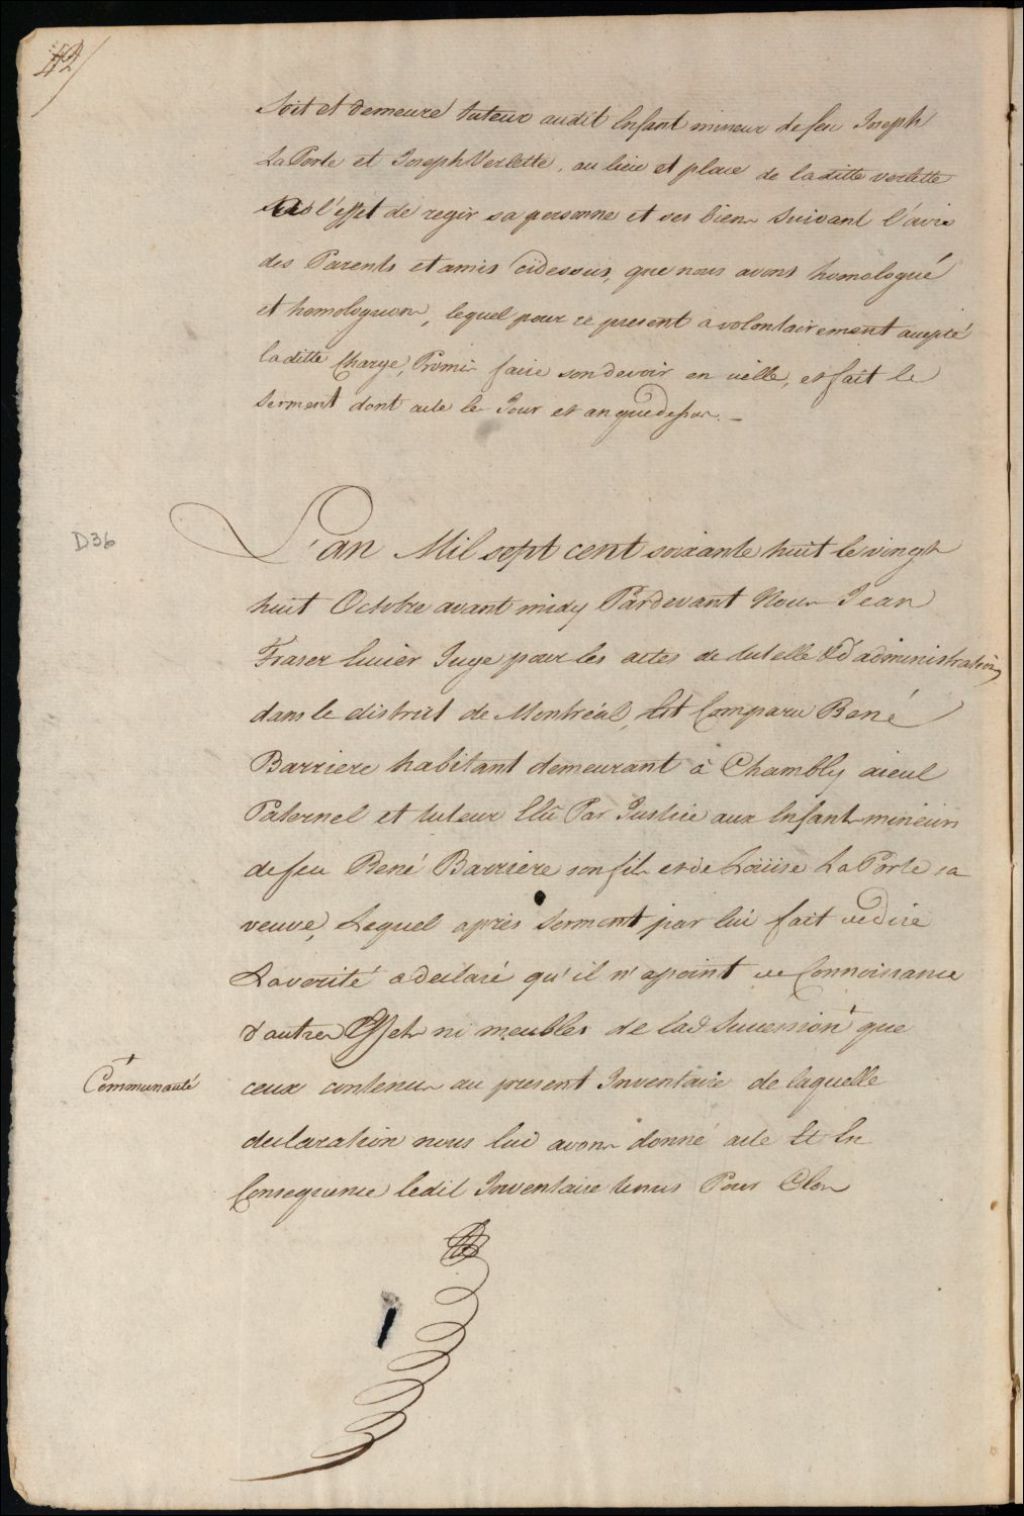 42/
Soit et demeure tuteur audit Enfant mineur de feu Joseph
LaPorte et Joseph Verlette, au lieu et place de laditte verlette
a l'effet de regir sa personne et ses biens Suivant l'avis
des Parents et amis cidesous, que nous avons homologué
et homologuons, lequel pour ce present a volontairement accepté
laditte Charge, Promis faire son devoir en icelle, et fait le
Serment dont acte les Jour et an que dessus. —
D36
L'an Mil sept cent soixante huit le vingt
huit Octobre avant midy Pardevant Nous Jean
Fraser Ecuier Juge pour les actes de tutelle & d'administration
dans le district de Montréal, Est Comparu René
Barriere habitant demeurant à Chambly aieul
Paternel et tuteur Elû Par Justice aux Enfants mineurs
de feu René Barriere son fils et de Loüise La Porte sa
veuve, Lequel après Serment par lui fait de dire
La verité a declaré qu'il n'a point de Connoissance
d'autres Effets ni meubles de lad Succession + que
ceux contenus au present Inventaire de laquelle
declaration nous lui avons donné acte Et En
Consequence ledit Inventaire tenus Pour Clos
+
Communauté